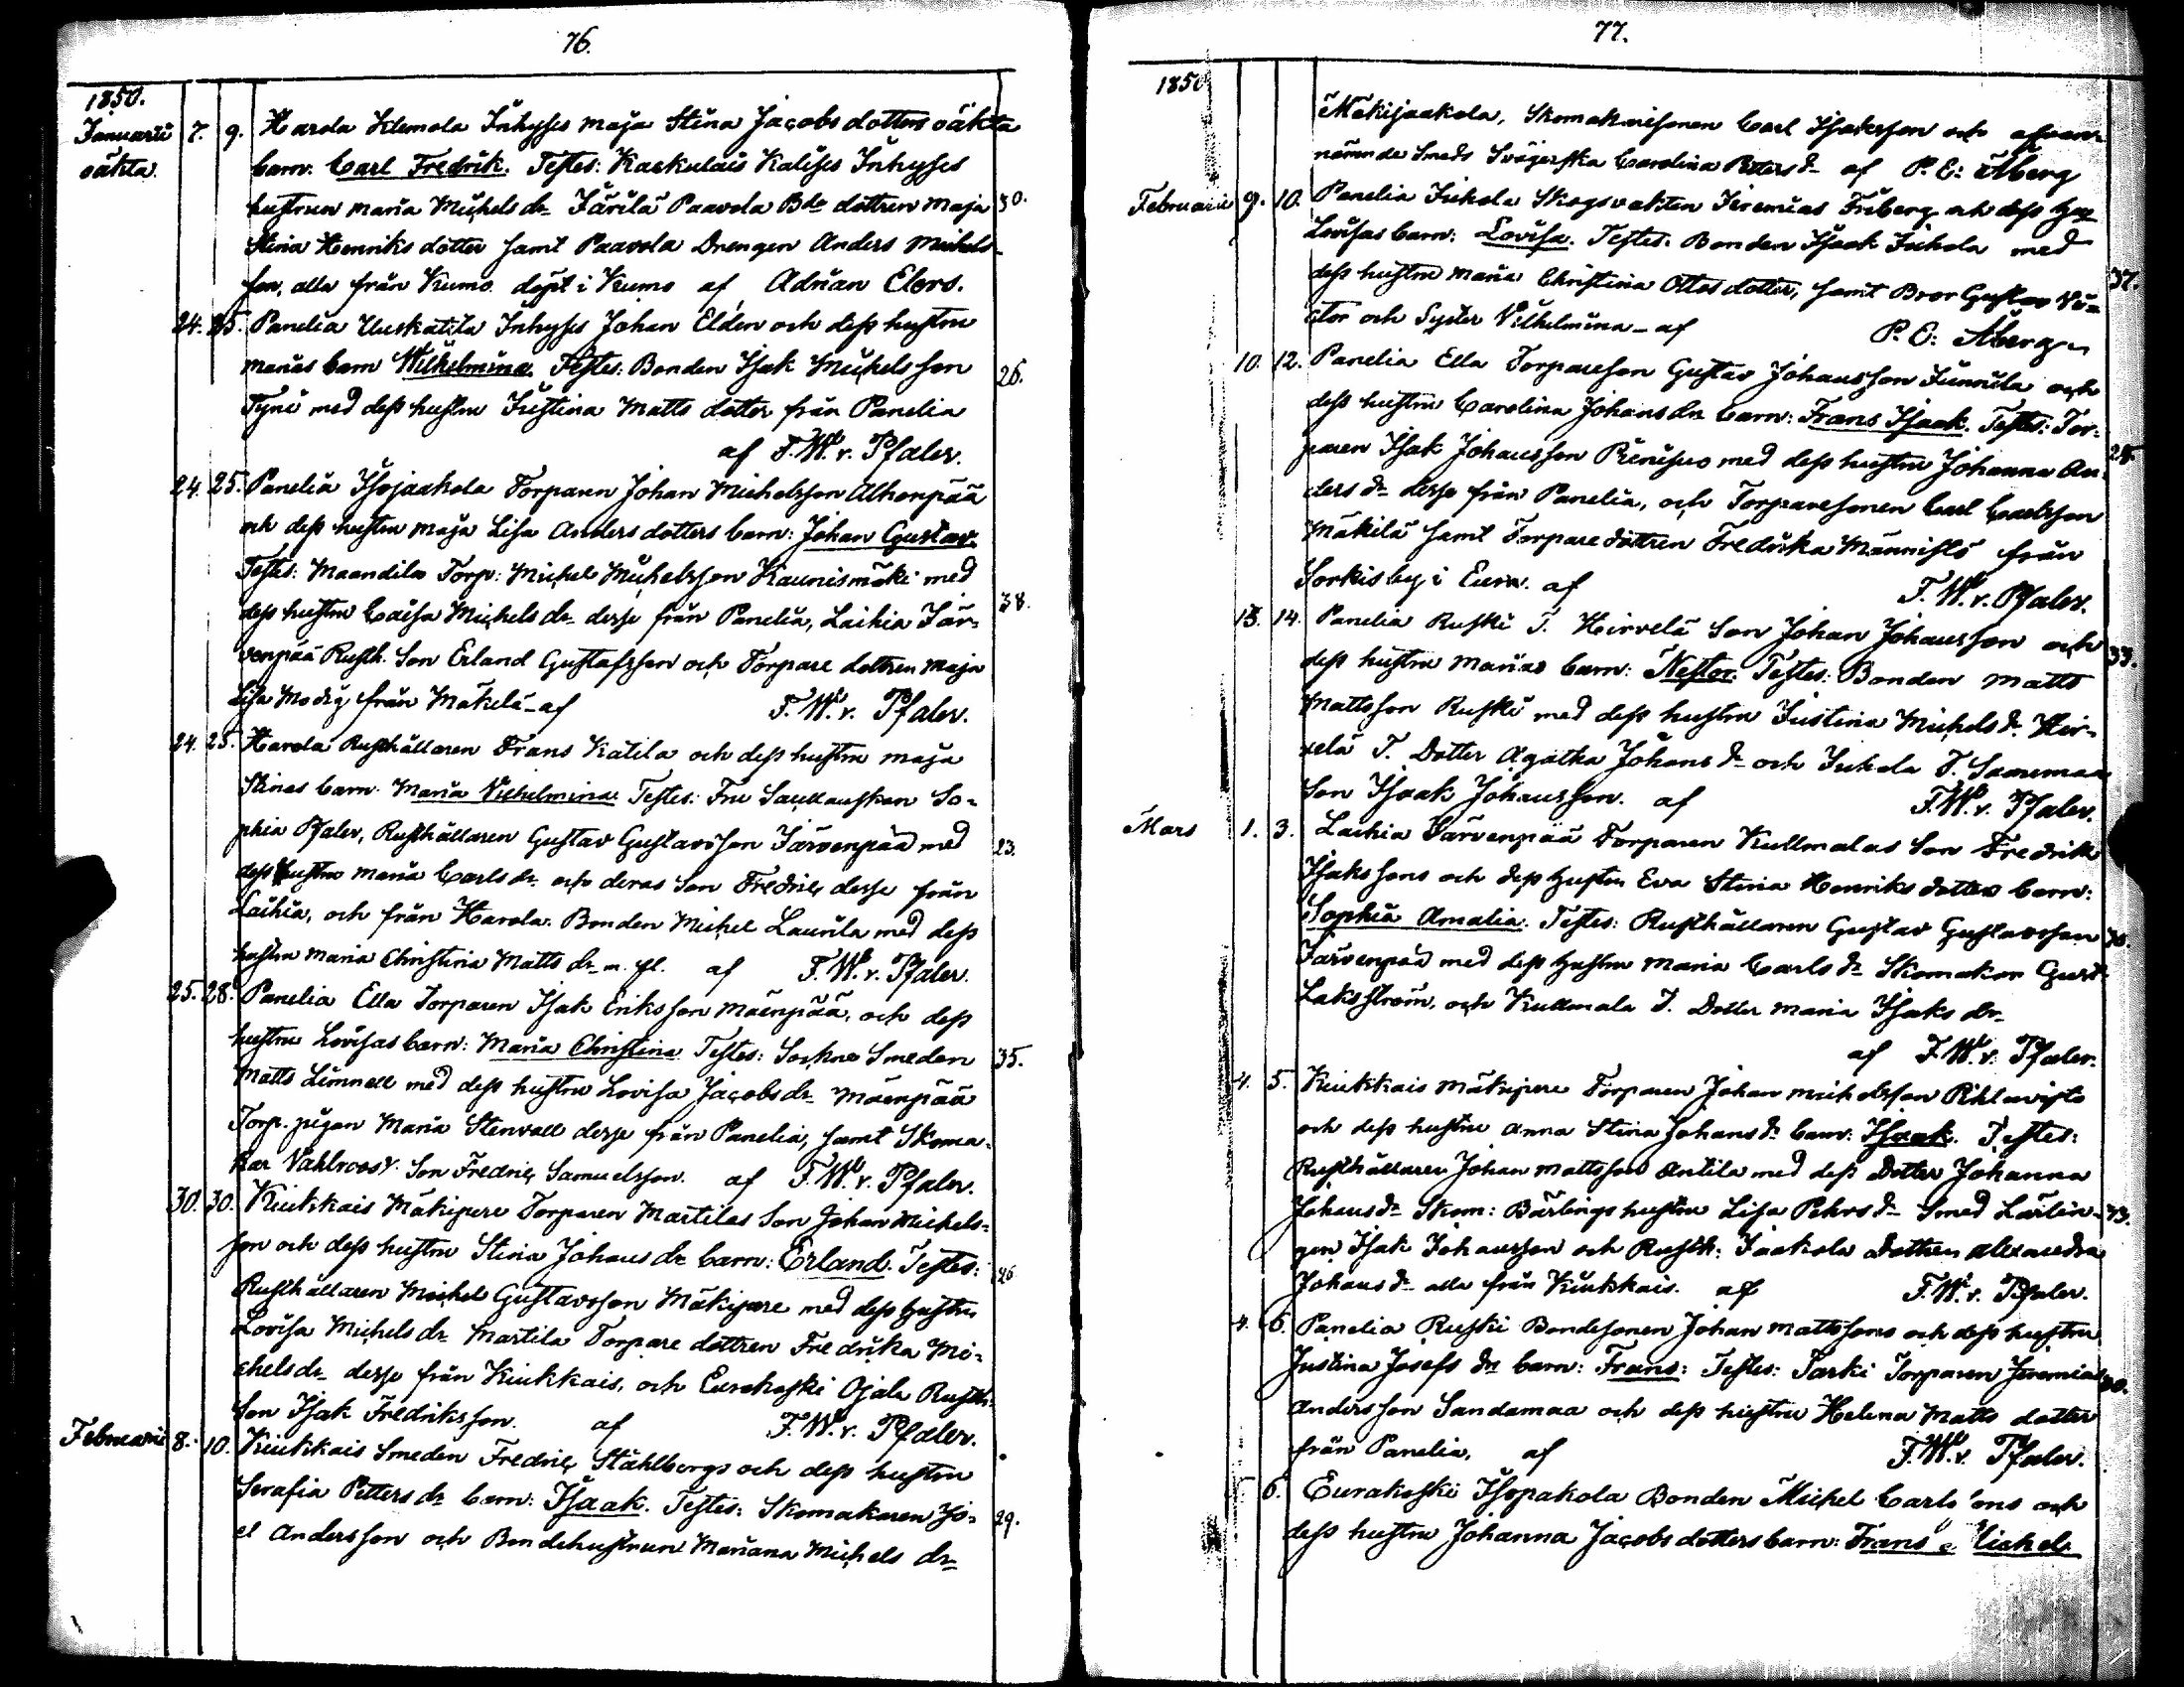 76.
1850.
Januarii 7. 9. Harola Klemola Inhyses Maja Stina Jacobsdotters oäkta
oäkta. barn: Carl Fredrik. Testes: Kaskulais Inhyses
hustrun Maria Michels dr. Järilä Paavola Bde dottren Maja 30.
Stina Henriks dotter samt Paavola Drengen Anders Michels-
son, alla från Kumo. döpt i Kumo af Adrian Elers.
24. 25. Panelia Uuskatila Inhyses Johan Eldén och dess hustru
Marias barn Wilhelmina. Testes: Bonden Isak Michelsson 26.
Tyni med dess hustru Justina Matts dotter från Panelia
af F. W. v. Pfaler.
24. 25. Panelia Isojaakola Torparen Johan Michelsson Alhonpää
och dess hustru Maja Lisa Anders dotters barn: Johan Gustav.
Testes: Maandila Torp: Michel Michelsson Kaunismäki med
dess hustru Caisa Michels dr. desse från Panelia, Laihia Jär- 38.
venpää Rusth. Son Erland Gustafsson och Torpare dottren Maja
Lisa Modig från Mäkelä af F. W. v. Pfaler.
24. 25. Harola Rusthållaren Frans Katila och dess hustru Maja
Stinas barn: Maria Vilhelmina. Testes: Fru So-
phia Pfaler, Rusthållaren Gustav Gustavsson Järvenpää med 23.
dess hustru Maria Carls dr. och deras Son Fredric, desse från
Laihia, och från Harola: Bonden Michel Laurila med dess
hustru Maria Christina Matts dr. m. fl. af F. W. v. Pfaler.
25. 28. Panelia Ella Torparen Isak Eriksson Mäenpää, och dess
hustru Lovisas barn: Maria Christina. Testes: Sockne Smeden 35.
Matts Limnell med dess hustru Lovisa Jacobs dr. Mäenpää
Torp. pigan Maria Stenvall desse från Panelia, samt Skoma-
kar Vahlroos's Son Fredric Samuelsson. af F. W. v. Pfaler.
30. 30. Kiukkais Mäkipere Torparen Martilas Son Johan Michels-
son och dess hustru Stina Johans dr. barn: Erland. Testes: 26
Rusthållaren Michel Gustavsson Mäkipere med dess hustru
Lovisa Michels dr. Martila Torpare dottren Fredrika Mi-
chels dr. desse från Kiukkais, och Eurakoski Ojala Rusth:
Son Isak Fredriksson. af F. W. v. Pfaler.
Februarii 8. 10. Kiukkais Smeden Fredric Ståhlbergs och dess hustru
Serafia Petters dr. barn: Isaak. Testes: Skomakaren Jo- 29.
el Andersson och Bondehustrun Mariana Michels dr.
77.
1850
Mäkijaakola, Skomakaresonen Carl Isaksson och ofvan-
nämnde Smeds Svägerska Carolina Petersd. af P. E: Åberg
Februarii 9. 10. Panelia Juhola Skogsvakten Jeremias Friberg och dess hu
Lovisas barn: Lovisa. Testes: Bonden Isaak Juhola med
dess hustru Maria Christina Ottos dotter, samt Bror Gustav Vi- 37.
ctor och Syster Vilhelmina af P. E: Åberg
10. 12. Panelia Ella Torpareson Gustav Johansson Junnila och
dess hustru Carolina Johans dr. barn: Frans Isaak. Testes: Tor-
paren Isak Johansson med dess hustru Johanna An- 28.
ders dr. desse från Panelia, och Torparesonen Carl Carlsson
Mäkilä samt Torparedottren Fredrika Männistö från
Sorkis by i Eura. af F. W. v. Pfaler.
13. 14. Panelia Ruski T. Hirvelä Son Johan Johansson och
dess hustru Marias barn: Nestor. Testes: Bonden Matts 33.
Mattsson Ruski med dess hustru Justina Michelsd. Hir-
velä T. Dotter Agatha Johans dr. och Juhola T. Saarimaa
Son Isaak Johansson. af F. W. v. Pfaler.
Mars 1. 3. Laihia Järvenpää Torparen Kullmalas Son Fredrik
Isakssons och dess hustru Eva Stina Henriks dotters barn:
Sophia Amalia. Testes: Rusthållaren Gustav Gustavsson
Järvenpää med dess hustru Maria Carls dr. Skomakar Gust.
Laksström, och Kullmala T. Dotter Maria Isaks dr.
af F. W. v. Pfaler.
4. 5. Kiukkais Mäkipere Torparen Johan Michelsson Pihlavisto
och dess hustru Anna Stina Johans dr. barn: Isaak. Testes:
Rusthållaren Johan Mattsson Antila med dess Dotter Johanna
Johansdr. Skom: Bärlings hustru Lisa Pehrs dr. Smed Lärlin-
gen Isak Johansson och Rusth: Jaakola dottren Alexandra
Johans dr. alla från Kiukkais. af F. W. v. Pfaler.
4. 6. Panelia Ruski Bondesonen Johan Mattssons och dess hustru
Justina Josefs dr. barn: Frans: Testes: Torparen Jeremias
Andersson Sandamaa och dess hustru Helena Matts dotter
från Panelia. af F. W. v. Pfaler.
6. Eurakoski Isopakola Bonden Michel Carls ons och
dess hustru Johanna Jacobs dotters barn: Frans